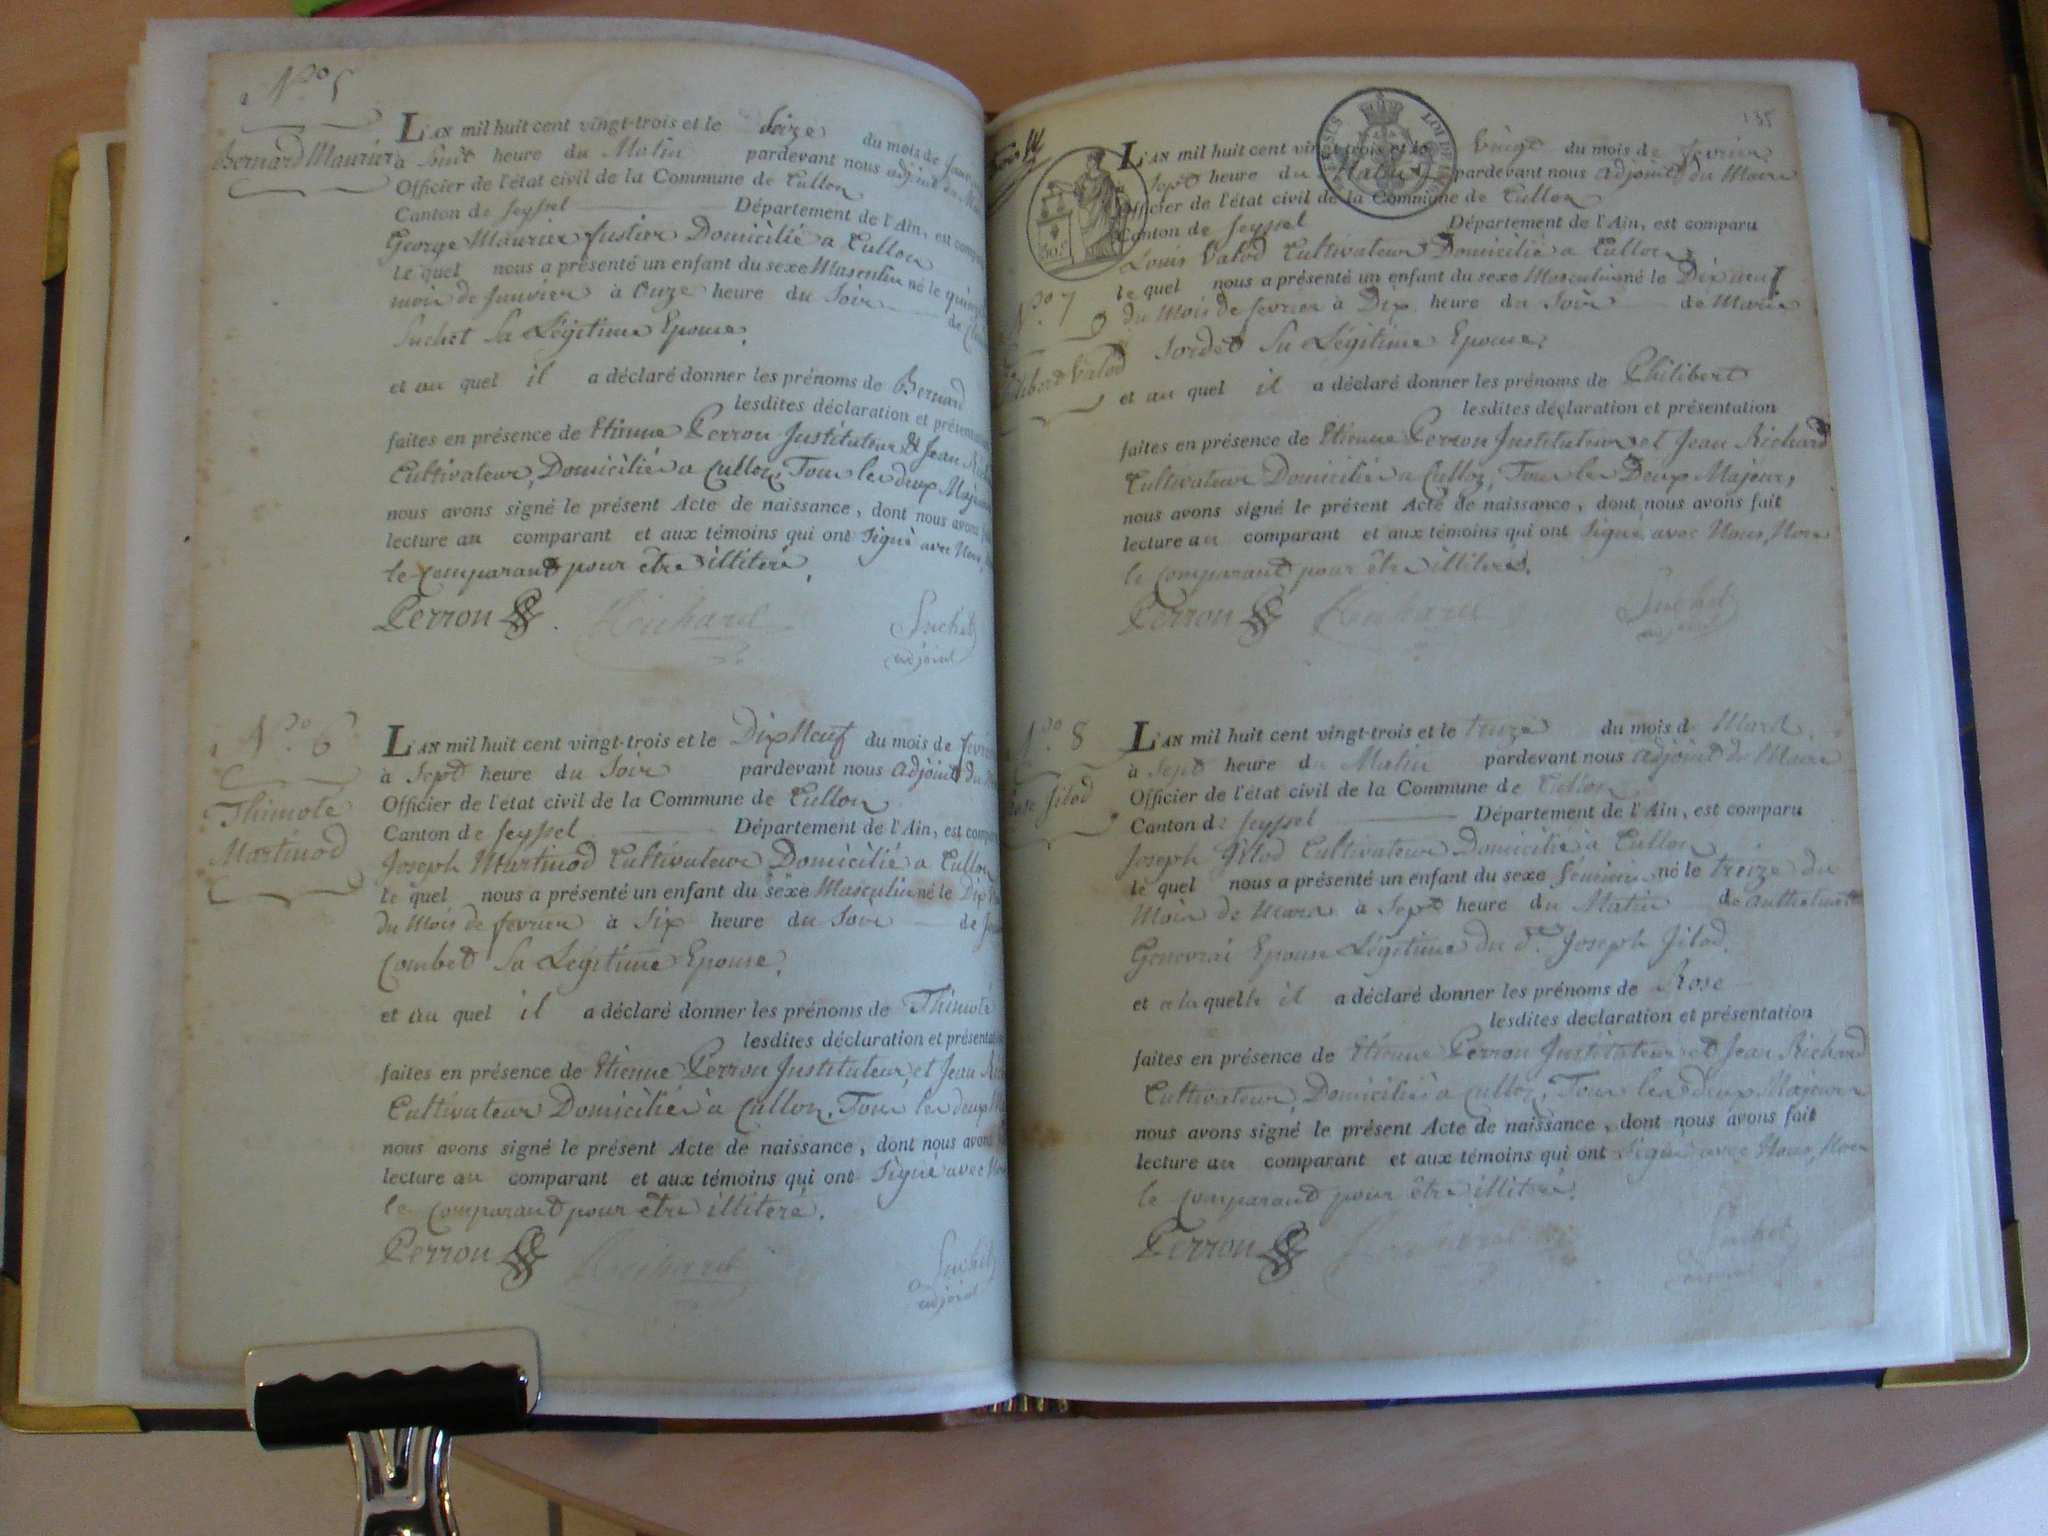 N.o 5
Bernard Maurier
L'AN mil huit cent vingt-trois et le Seize du mois de
à huit heure du Matin pardevant nous adjoint du
Officier de l'état civil de la Commune de Culloz
Canton de Seyssel Département de l'Ain, est
George Maurier Domicilié a Culloz
le quel nous a présenté un enfant du sexe Masculin né le
mois de Janvier à Onze heure du Soir de
Suchet Sa Légitime Epouse,
et au quel il a déclaré donner les prénoms de Bernard
lesdites déclaration et
faites en présence de Etienne Perron Instituteur et Jean
Cultivateur, Domiciliés a Culloz, Tous les deux
nous avons signé le présent Acte de naissance, dont nous avons
lecture au comparant et aux témoins qui ont Signé avec Nous,
le comparant pour être illitéré,
Perron Richard Suchet
adjoint
N.o 6
Thimoté
Martinod
L'AN mil huit cent vingt-trois et le Dix Neuf du mois de
à Sept heure du Soir pardevant nous adjoint du
Officier de l'état civil de la Commune de Culloz
Canton de Seyssel Département de l'Ain, est
Joseph Martinod Cultivateur Domicilié a Culloz
le quel nous a présenté un enfant du sexe Masculin né le Dix
du Mois de fevrier à Six heure du Soir de
Combet Sa Légitime Epouse,
et au quel il a déclaré donner les prénoms de Thimoté
lesdites déclaration et
faites en présence de Etienne Perron Instituteur, et Jean
Cultivateur Domiciliés à Culloz, Tous les deux
nous avons signé le présent Acte de naissance, dont nous avons
lecture au comparant et aux témoins qui ont Signé avec
le comparant pour être illitéré,
Perron Richard Suchet
adjoint
135
N.o 7
Valod
L'AN mil huit cent vingt-trois et le Vingt du mois de fevrier
Sept heure du Matin pardevant nous adjoint du Maire
Officier de l'état civil de la Commune de Culloz
Canton de Seyssel Département de l'Ain, est comparu
Louis Valod Cultivateur Domicilié a Culloz
le quel nous a présenté un enfant du sexe Masculin né le Dix neuf
du Mois de fevrier à Dix heure du Soir de Marie
Sordet Sa Légitime Epouse,
et au quel il a déclaré donner les prénoms de Philibert
lesdites déclaration et présentation
faites en présence de Etienne Perron Instituteur et Jean Richard
Cultivateur Domiciliés a Culloz, Tous les Deux Majeurs,
nous avons signé le présent Acte de naissance, dont nous avons fait
lecture au comparant et aux témoins qui ont Signé avec Nous, Non
le comparant pour être illitéré.
Perron Richard Suchet
adjoint
N.o 8
Rose Jilod
L'AN mil huit cent vingt-trois et le treize du mois de Mars
à Sept heure du Matin pardevant nous adjoint du Maire
Officier de l'état civil de la Commune de Culloz
Canton de Seyssel Département de l'Ain, est comparu
Joseph Jilod Cultivateur Domicilié à Culloz
le quel nous a présenté un enfant du sexe féminin né le treize du
Mois de Mars à Sept heure du Matin de
Epouse Légitime du d. Joseph Jilod.
et a la quelle il a déclaré donner les prénoms de Rose
lesdites declaration et présentation
faites en présence de Etienne Perron Instituteur et Jean Richard
Cultivateur, Domiciliés à Culloz, Tous les deux Majeurs
nous avons signé le présent Acte de naissance, dont nous avons fait
lecture au comparant et aux témoins qui ont Signé avec Nous, Non
le comparant pour être illitéré.
Perron Richard Suchet
adjoint